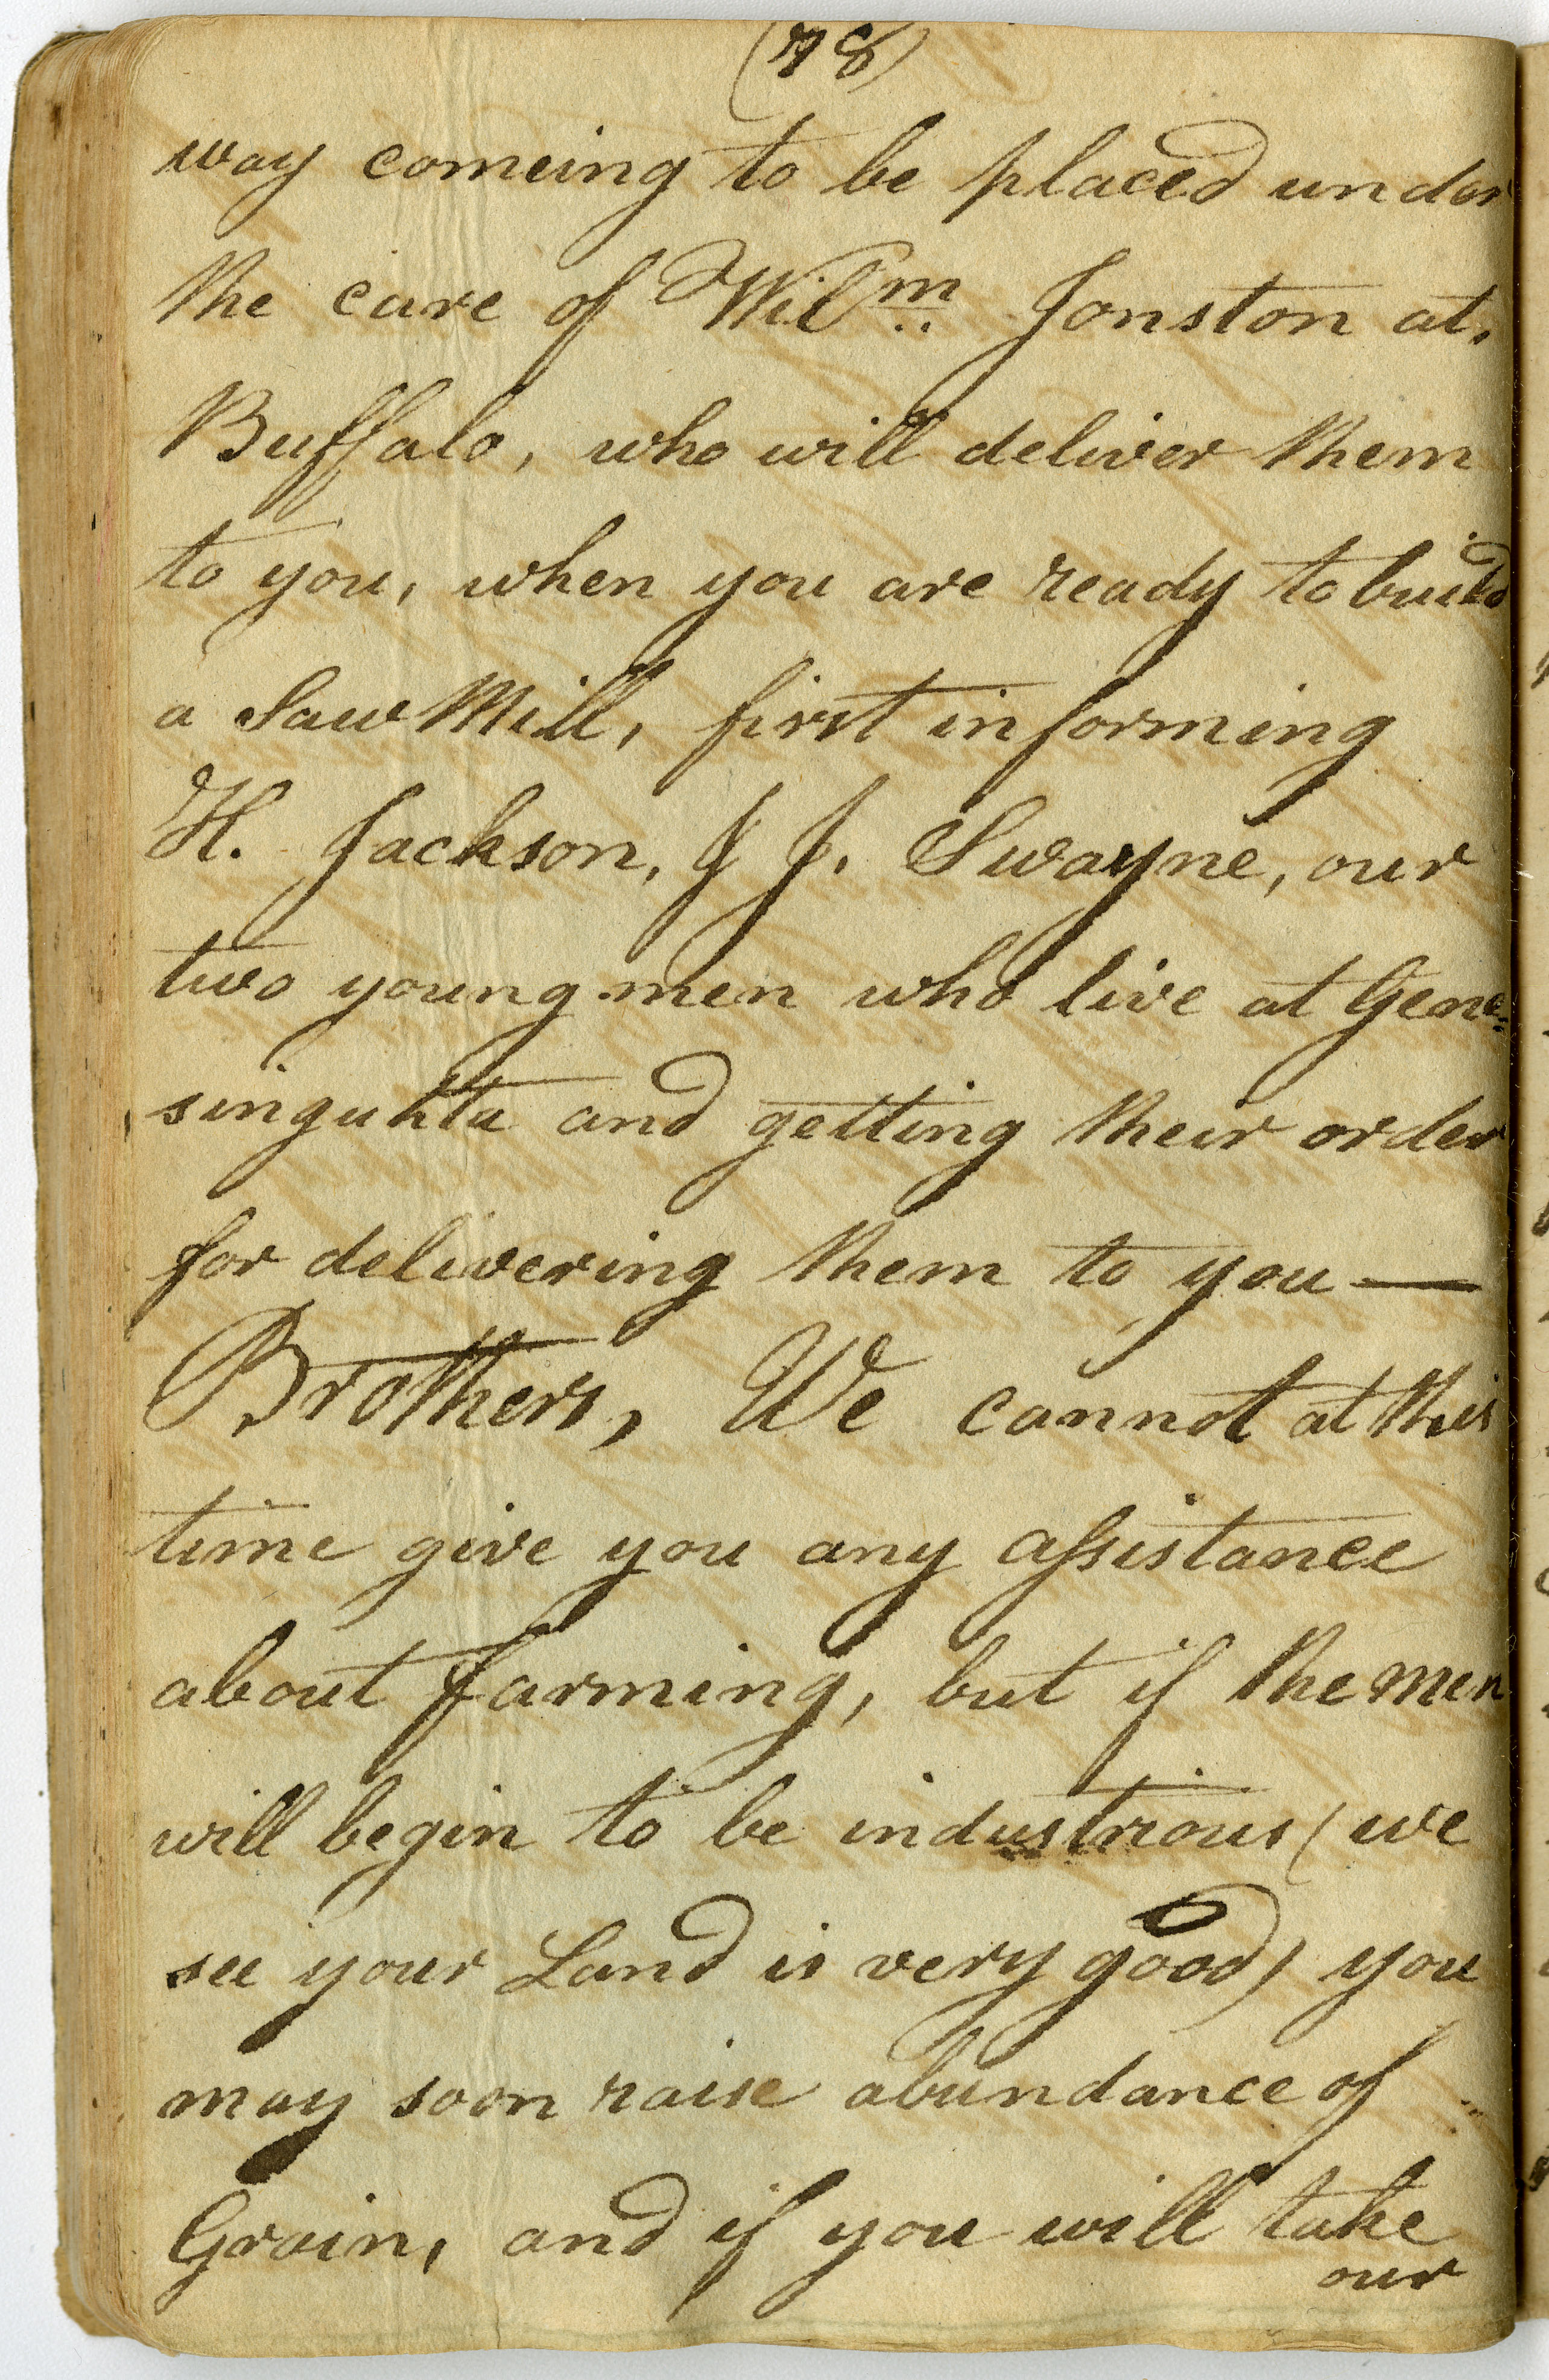 (78)
way comeing to be placed under
the care of Wilm Jonston at.
Buffalo, who will deliver them
to you, when you are ready to build
a Saw Mill, first informing
H. Jackson, & J. Swayne, our
two young men who live at Gene=
singuhta and getting their order
for delivering them to you —
Brothers, We cannot at this
time give you any assistance
about farming, but if the men
will begin to be industrious (we
see your Land is very good) you
may soon raise abundance of
Grain, and if you will take
our